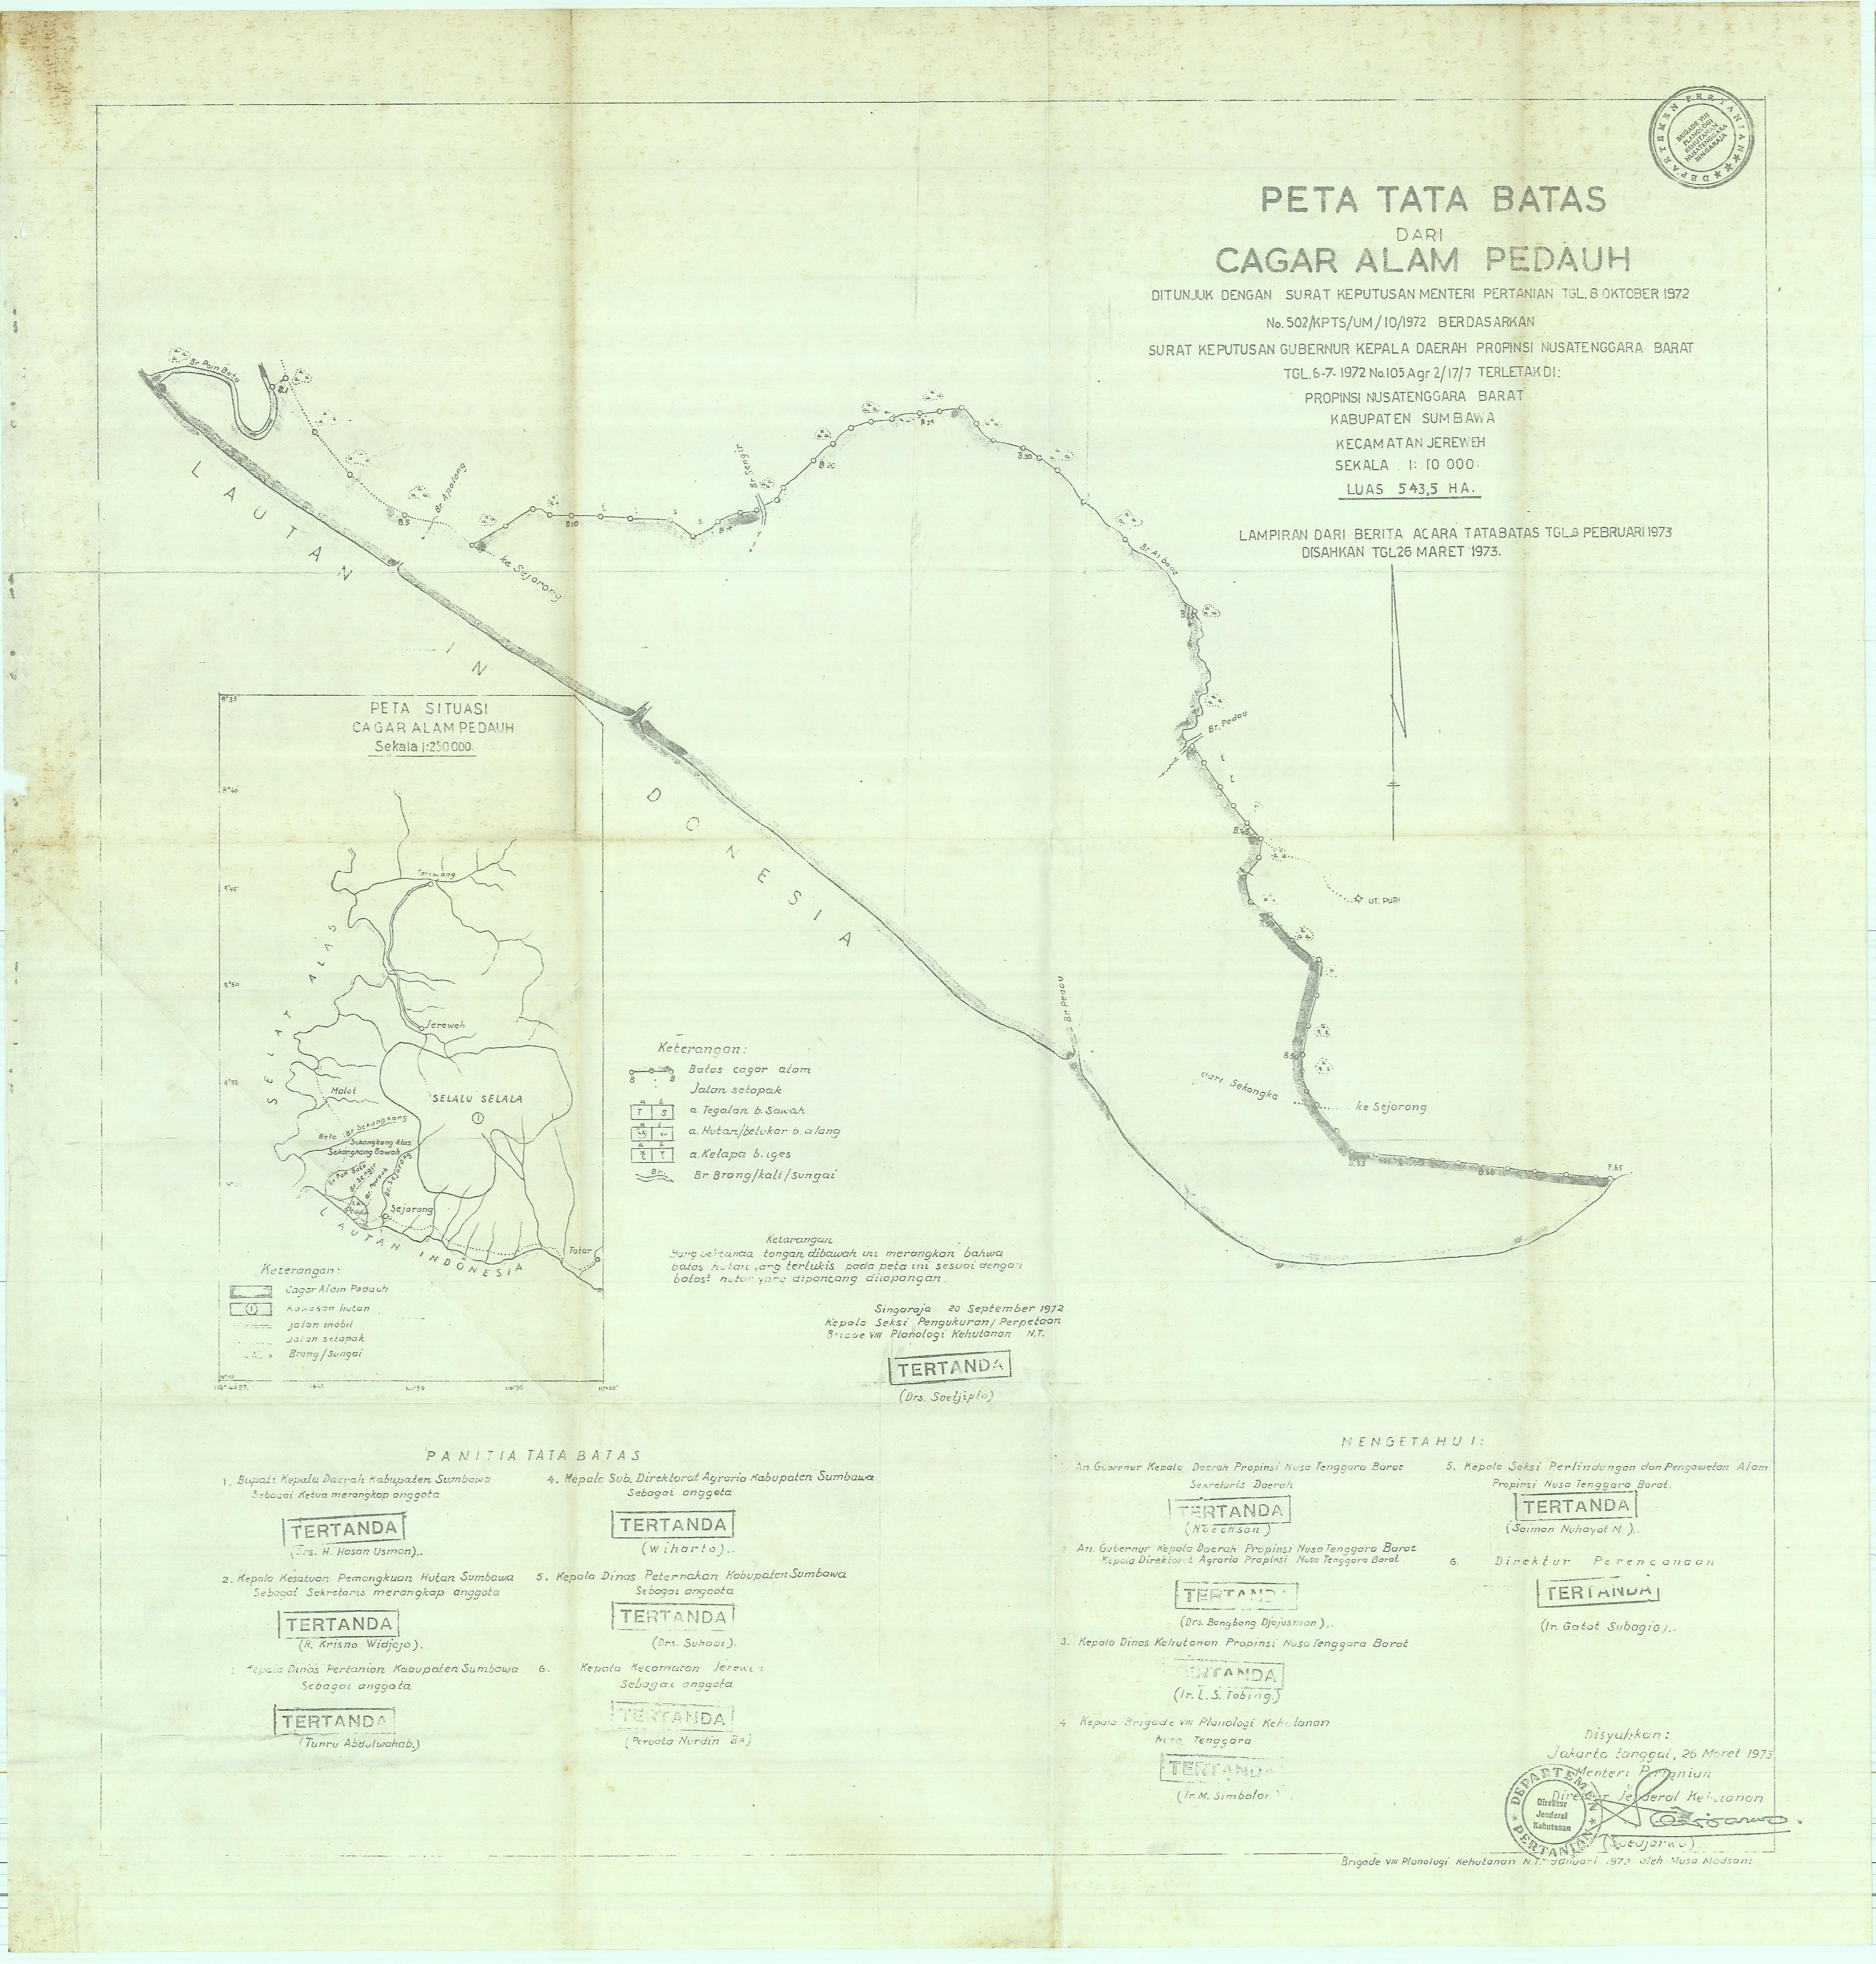 DEPARTEMEN PERTANIAN
BRIGADE VIII
PLANOLOGI
KEHUTANAN
NUSATENGGARA
SINGARAJA
PETA TATA BATAS
DARI
CAGAR ALAM PEDAUH
DITUNJUK DENGAN SURAT KEPUTUSAN MENTERI PERTANIAN TGL. 8 OKTOBER 1972
No. 502/KPTS/UM/10/1972 BERDASARKAN
SURAT KEPUTUSAN GUBERNUR KEPALA DAERAH PROPINSI NUSATENGGARA BARAT
TGL. 6-7-1972 No.105 Agr 2/17/7 TERLETAK DI:
PROPINSI NUSATENGGARA BARAT
KABUPATEN SUMBAWA
KECAMATAN JEREWEH
SEKALA 1: 10 000.
LUAS 543,5 HA.
LAMPIRAN DARI BERITA ACARA TATABATAS TGL.8 PEBRUARI 1973
DISAHKAN TGL 26 MARET 1973.
Br. Pain Bato
B.1
B.5
Br. Apolong
ke Sejorong
B.10
Br. Sengir
B.20
B.25
B.30
Br. Pedau
B.45
UT. PURI
B.50
Br. Pedau
dari Sekongka
ke Sejorong
B.55
B.60
B.65
LAUTAN INDONESIA
PETA SITUASI
CAGAR ALAM PEDAUH
Sekala 1:250 000.
8°35'
8°40'
8°45'
8°50
8°55
Taliwang
SELAT ALAS
Jereweh
Malot
SELALU SELALA
1
Bele
Br Sekongkang
Sekongkong Atas
Sekongkong Bawah
Br Pain Bato
Br. Sengir
Br. Pedauh
Br. Sejorong
Sejorong
Tatar
LAUTAN INDONESIA
Keterangan:
Cagar Alam Paduuh
1 Kawasan hutan
Jalan mobil
Jalan setapak
Brang/Sungai
116° 40 BT.
116°50
116°55
Keterangan:
B B Batas cagar alam
Jalan setapak
a b T S a. Tegalan b. Sawah
a b a. Hutan/belukar b. alang
a b a. Kelapa b. iges
Br. Br Brang/kali/sungai
Ketarangan
Yang bertanda tangan dibawah ini merangkan bahwa
batas hutan yang terlukis pada peta ini sesuai dengan
batas² hutan yang dipancang dilapangan.
Singaraja 20 September 1972
Kepala Seksi Pengukuran/Perpetaan
Brigade VIII Planologi Kehutanan N.T.
TERTANDA
(Drs. Soetjipto)
PANITIA TATA BATAS
1. Bupati Kepala Daerah Kabupaten Sumbawa
Sebagai Ketua merangkap anggota
TERTANDA
(Drs. H. Hasan Usman)..
2. Kepala Kesatuan Pemangkuan Hutan Sumbawa
Sebagai Sekretaris merangkap anggota
TERTANDA
(R. Krisno Widjojo).
Kepala Dinas Pertanian Kabupaten Sumbawa
Sebagai anggota
TERTANDA
(Tunru Abdulwahab.)
4. Kepala Sub. Direktorat Agraria Kabupaten Sumbawa
Sebagai anggota
TERTANDA
(Wiharto)..
5. Kepala Dinas Peternakan Kabupaten Sumbawa
Sebagai anggota
TERTANDA
(Drs. Suhadi).
6. Kepala Kecamatan Jereweh
Sebagai anggota
TERTANDA
(Perwata Nurdin BA)
MENGETAHUI:
An. Gubernur Kepala Daerah Propinsi Nusa Tenggara Barat
Sekretaris Daerah
TERTANDA
(Noechson)
2 An. Gubernur Kepala Daerah Propinsi Nusa Tenggara Barat
Kepala Direktorat Agraria Propinsi Nusa Tenggara Barat.
TERTANDA
(Drs. Bangbang Djojusman)..
3. Kepala Dinas Kehutanan Propinsi Nusa Tenggara Barat
TERTANDA
(Ir. L. S. Tobing.)
4 Kepala Brigade VIII Planologi Kehutanan
Nusa Tenggara
TERTANDA
(Ir. M. Simbolon)
5. Kepala Seksi Perlindungan dan Pengawetan Alam
Propinsi Nusa Tenggara Barat.
TERTANDA
(Saiman Nuhayat M.)..
6. Direktur Perencanaan
TERTANDA
(Ir. Gatot Subagio)..
Disyahkan:
Jakarta tanggal, 26 Maret 1973
Menteri Pertanian
Direktur Jenderal Kehutanan
DEPARTEMEN PERTANIAN
Direktur
Jenderal
Kehutanan
(Soedjarwo)
Brigade VIII Planologi Kehutanan N.T. Januari 1973 oleh Musa Madsani